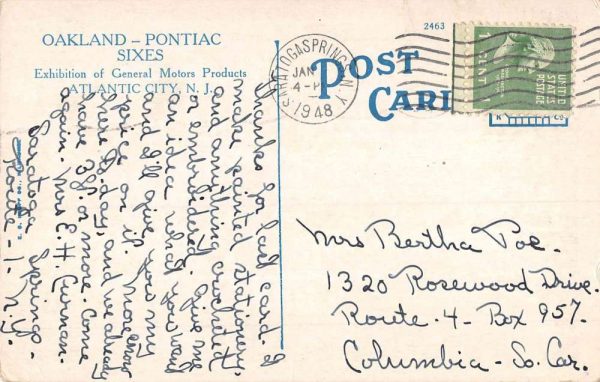 OAKLAND – PONTIAC
SIXES
Exhibition of General Motors Products
ATLANTIC CITY, N. J.
2463
POST
CARD
SARATOGA SPRINGS, N.Y.
JAN
4-P
1948
UNITED
STATES
POSTAGE
1 CENT
Thanks for last card. I
make painted stationery,
and anything crocheted
or embroidered. Give me
an idea what you want
and I'll give you my
price on it. More snow
here to-day, and we already
have 38 in. or more. Come
again. Mrs E. H. Curnan.
Saratoga Springs -
Route - 1 - N.Y. -
Mrs Bertha Poe -
1320 Rosewood Drive.
Route - 4 - Box 957.
Columbia - So. Car.